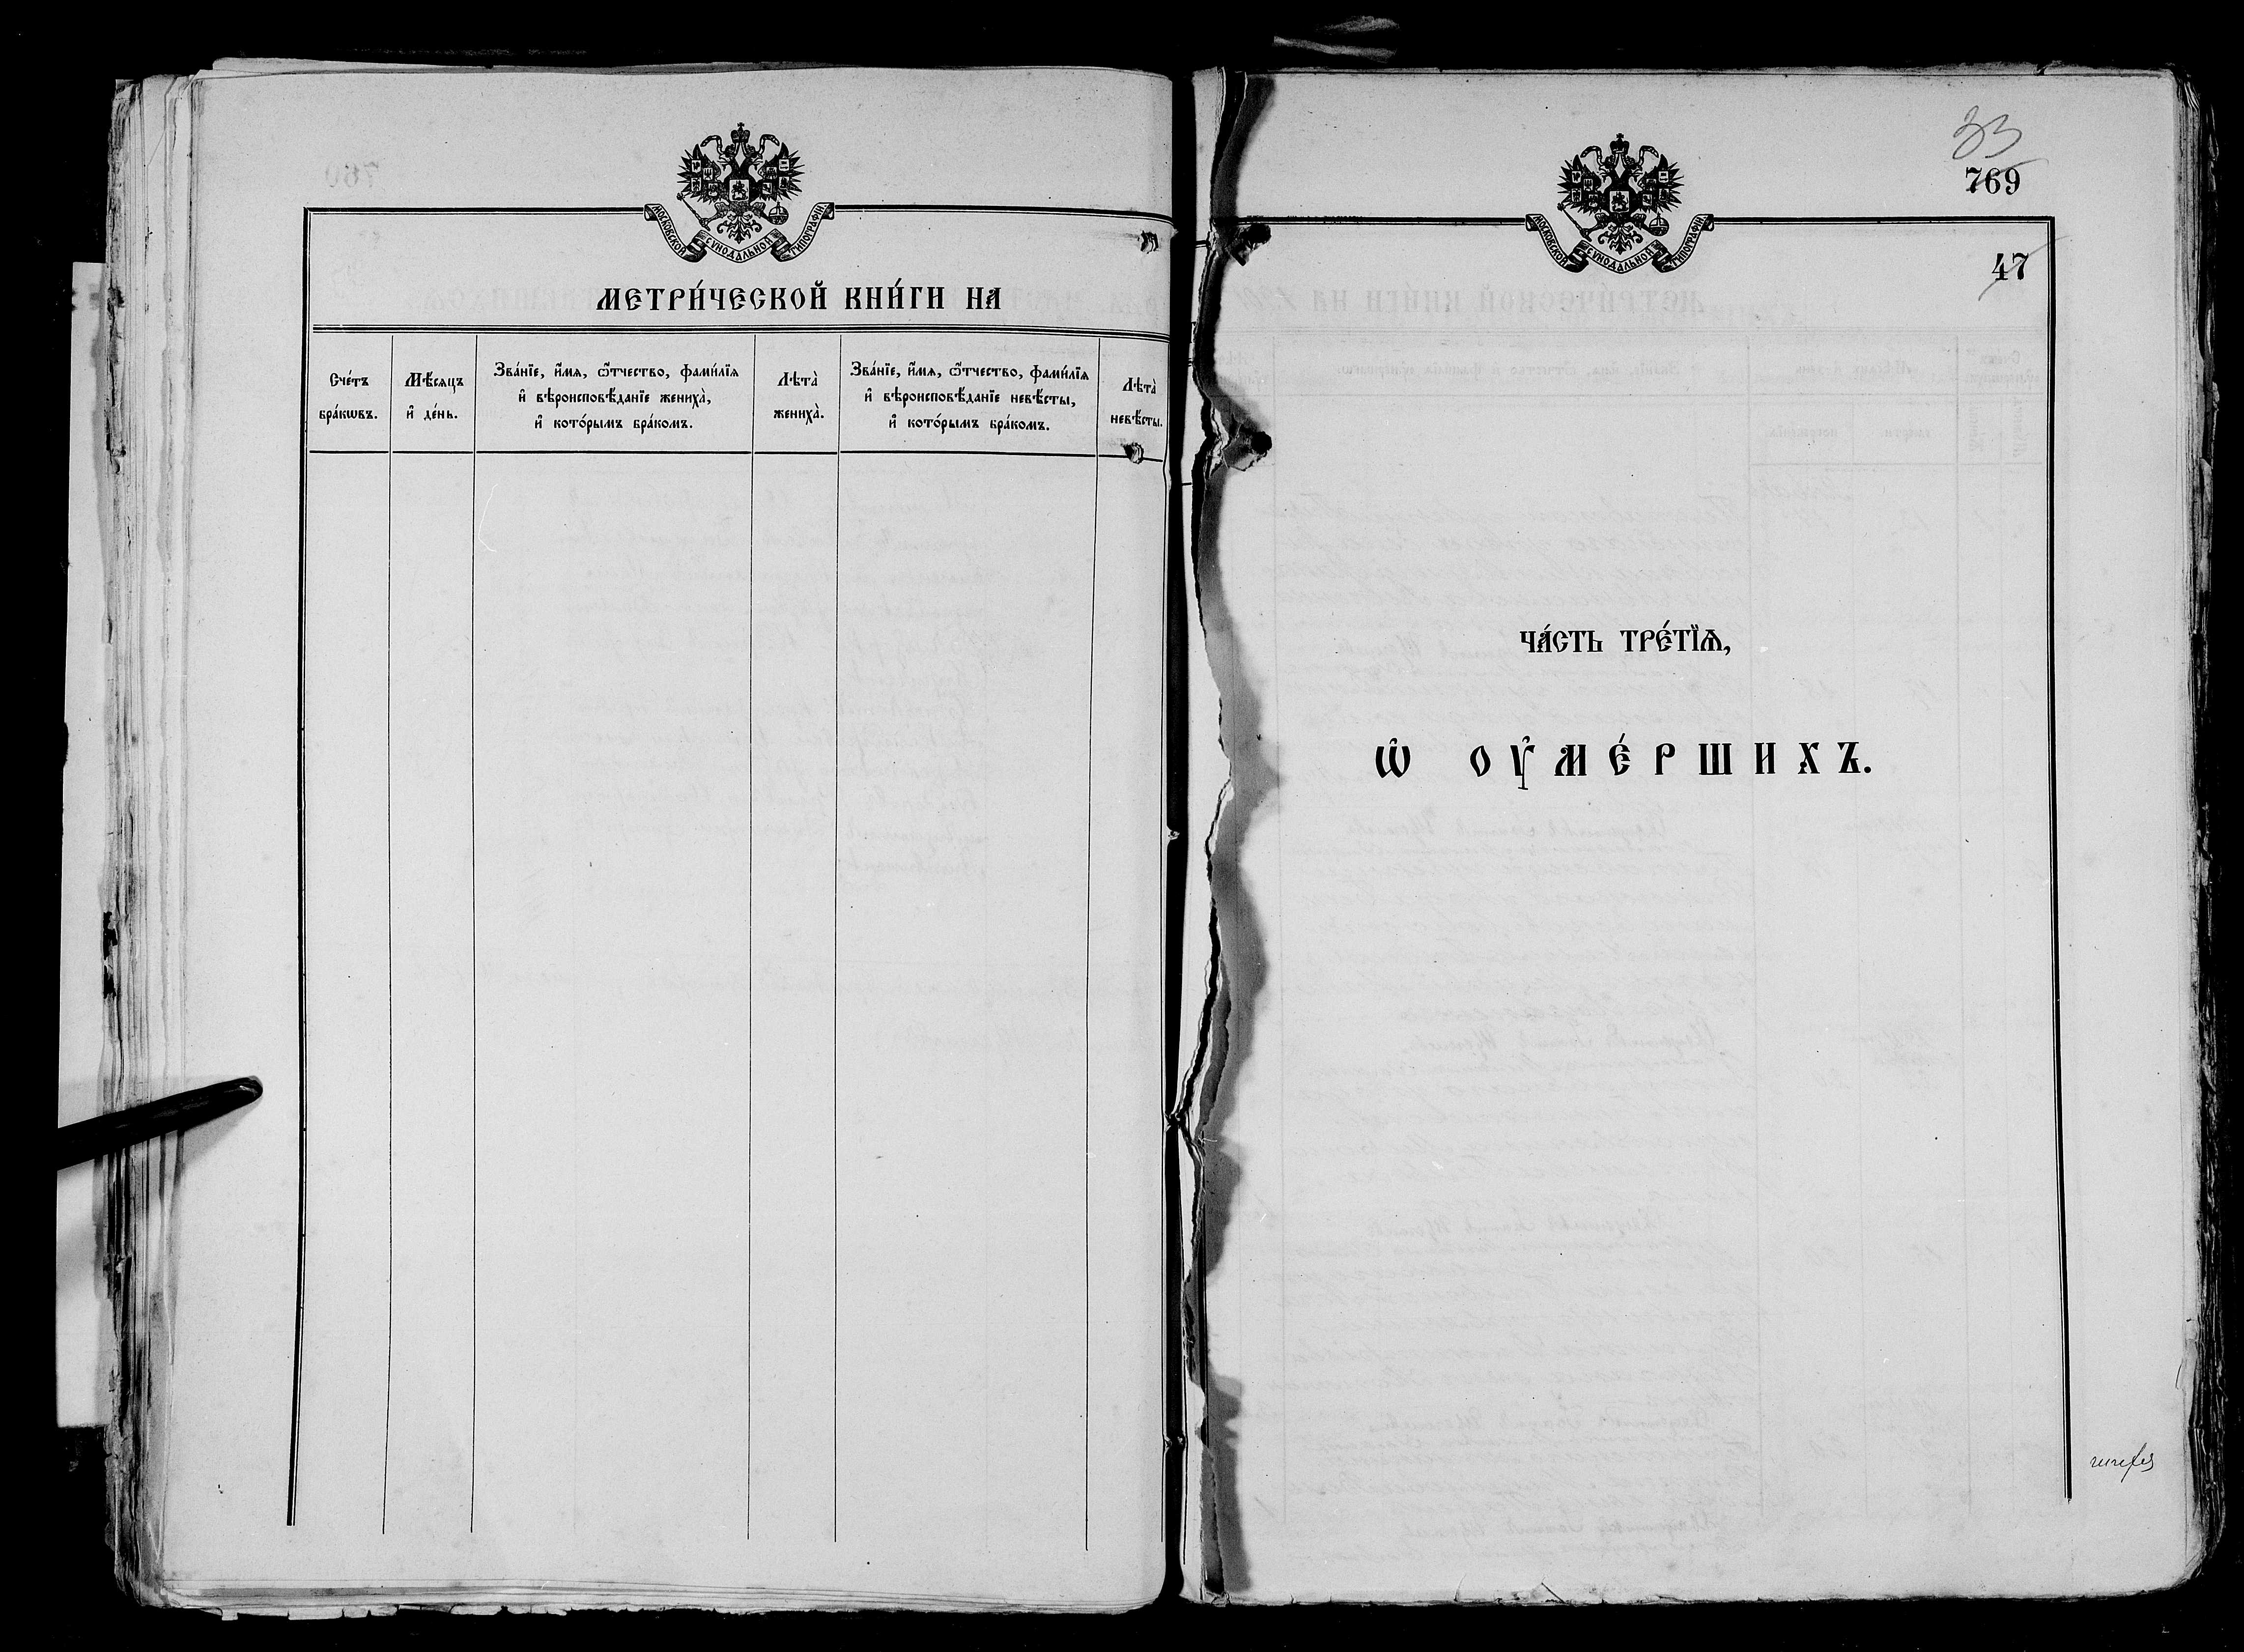 МОСКОВСКОЙ СѴНОДАЛЬНОЙ ТИПОГРАФІИ
МЕТРИ́ЧЕСКОЙ КНИ́ГИ НА
Сче́тъ бра́кѡвъ.
Мѣ́сяцъ и҆ де́нь.
Зва́нїе, и҆́мѧ, ѻ҆́тчество, фами́лїѧ
и҆ вѣроисповѣ́данїе жениха̀,
и҆ кото́рымъ бра́комъ.
Лѣта̀ жениха̀.
Зва́нїе, и҆́мѧ, ѻ҆́тчество, фами́лїѧ
и҆ вѣроисповѣ́данїе невѣ́сты,
и҆ кото́рымъ бра́комъ.
Лѣта̀ невѣ́сты.
33
769
МОСКОВСКОЙ СѴНОДАЛЬНОЙ ТИПОГРАФІИ
47
ЧА́СТЬ ТРЕ́ТЇѦ,
Ѡ҆ ОУ҆МЕ́РШИХЪ.